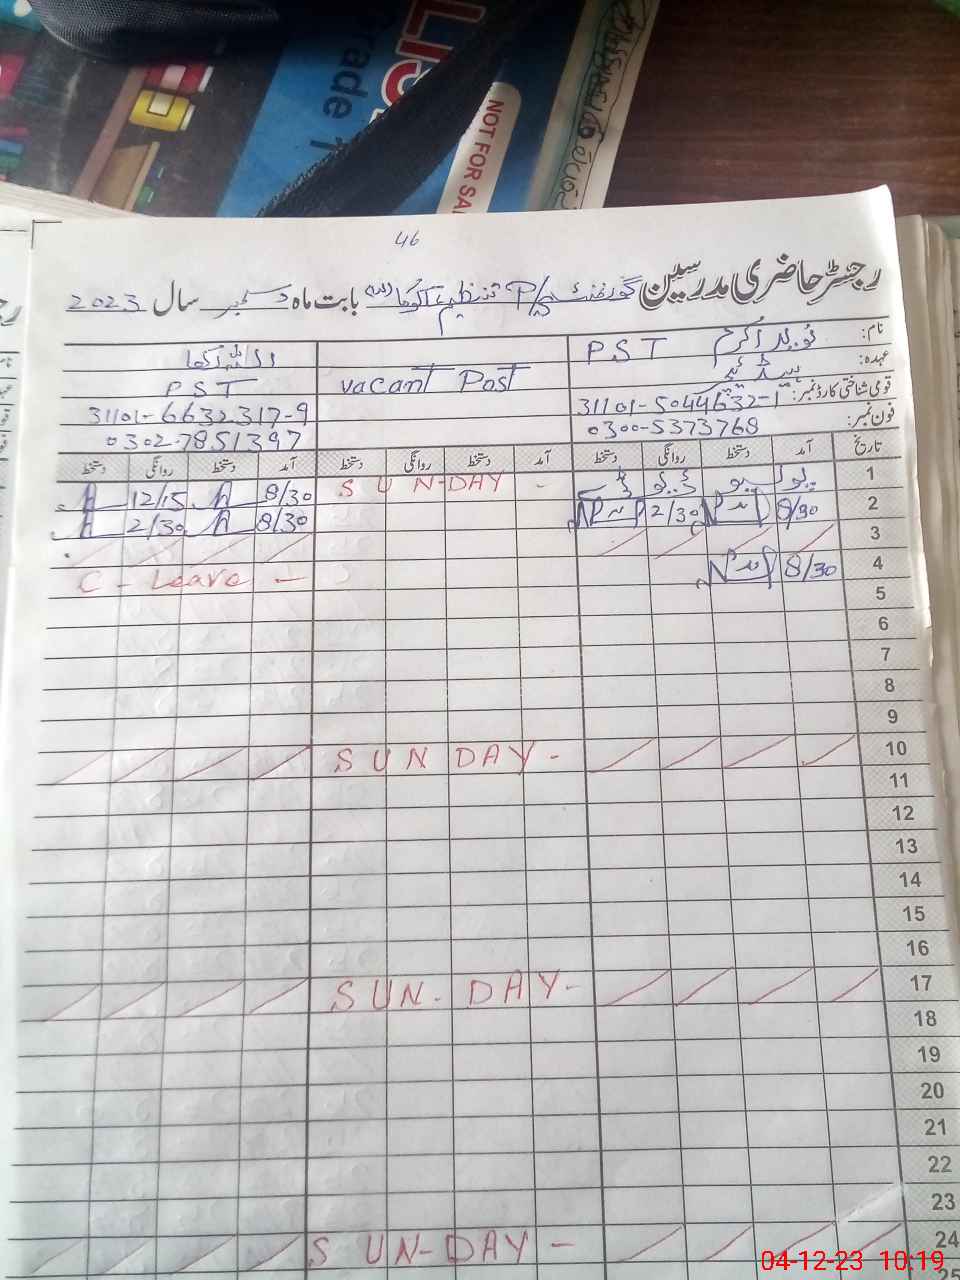 LIS
rade 1
NOT FOR SA
46
رجسٹر حاضری مدرسین گورنمنٹ P/S بابت ماہ دسمبر سال 2023
نام: نوید اکرم
PST
عہدہ:
قومی شناختی کارڈ نمبر: 31101-5044632-1
فون نمبر: 0300-5373768
vacant Post
PST
31101-6632317-9
0302-7851397
تاریخ آمد دستخط روانگی دستخط آمد دستخط روانگی دستخط آمد دستخط روانگی دستخط
1 پولیو ڈیوٹی 8/30 12/15
SUN-DAY -
2 8/30 2/30 8/30 2/30
3
4 8/30 C - Leave -
5
6
7
8
9
10 SUNDAY -
11
12
13
14
15
16
17 SUN-DAY-
18
19
20
21
22
23
24 SUN-DAY -
25
04-12-23 10:19